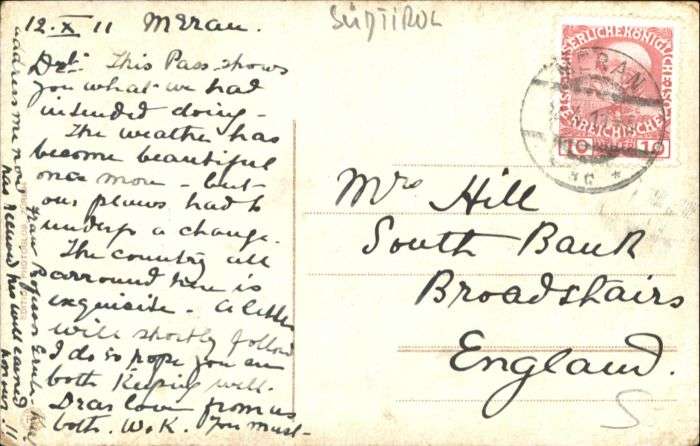 12.X.11 Meran.
SÜDTIROL
Drst. This Pass shows
you what we had
intended doing -
The weather has
become beautiful
once more - but
our plans had to
undergo a change.
The country all
arround here is
exquisite - A letter
will shortly follow
I do so hope you are
both keeping well.
Dear love from us
both. W.K. You must
address me now
Frau
has received his well earned
honour!!
MERAN
10 10
Mrs Hill
South Bank
Broadstairs
England.
S